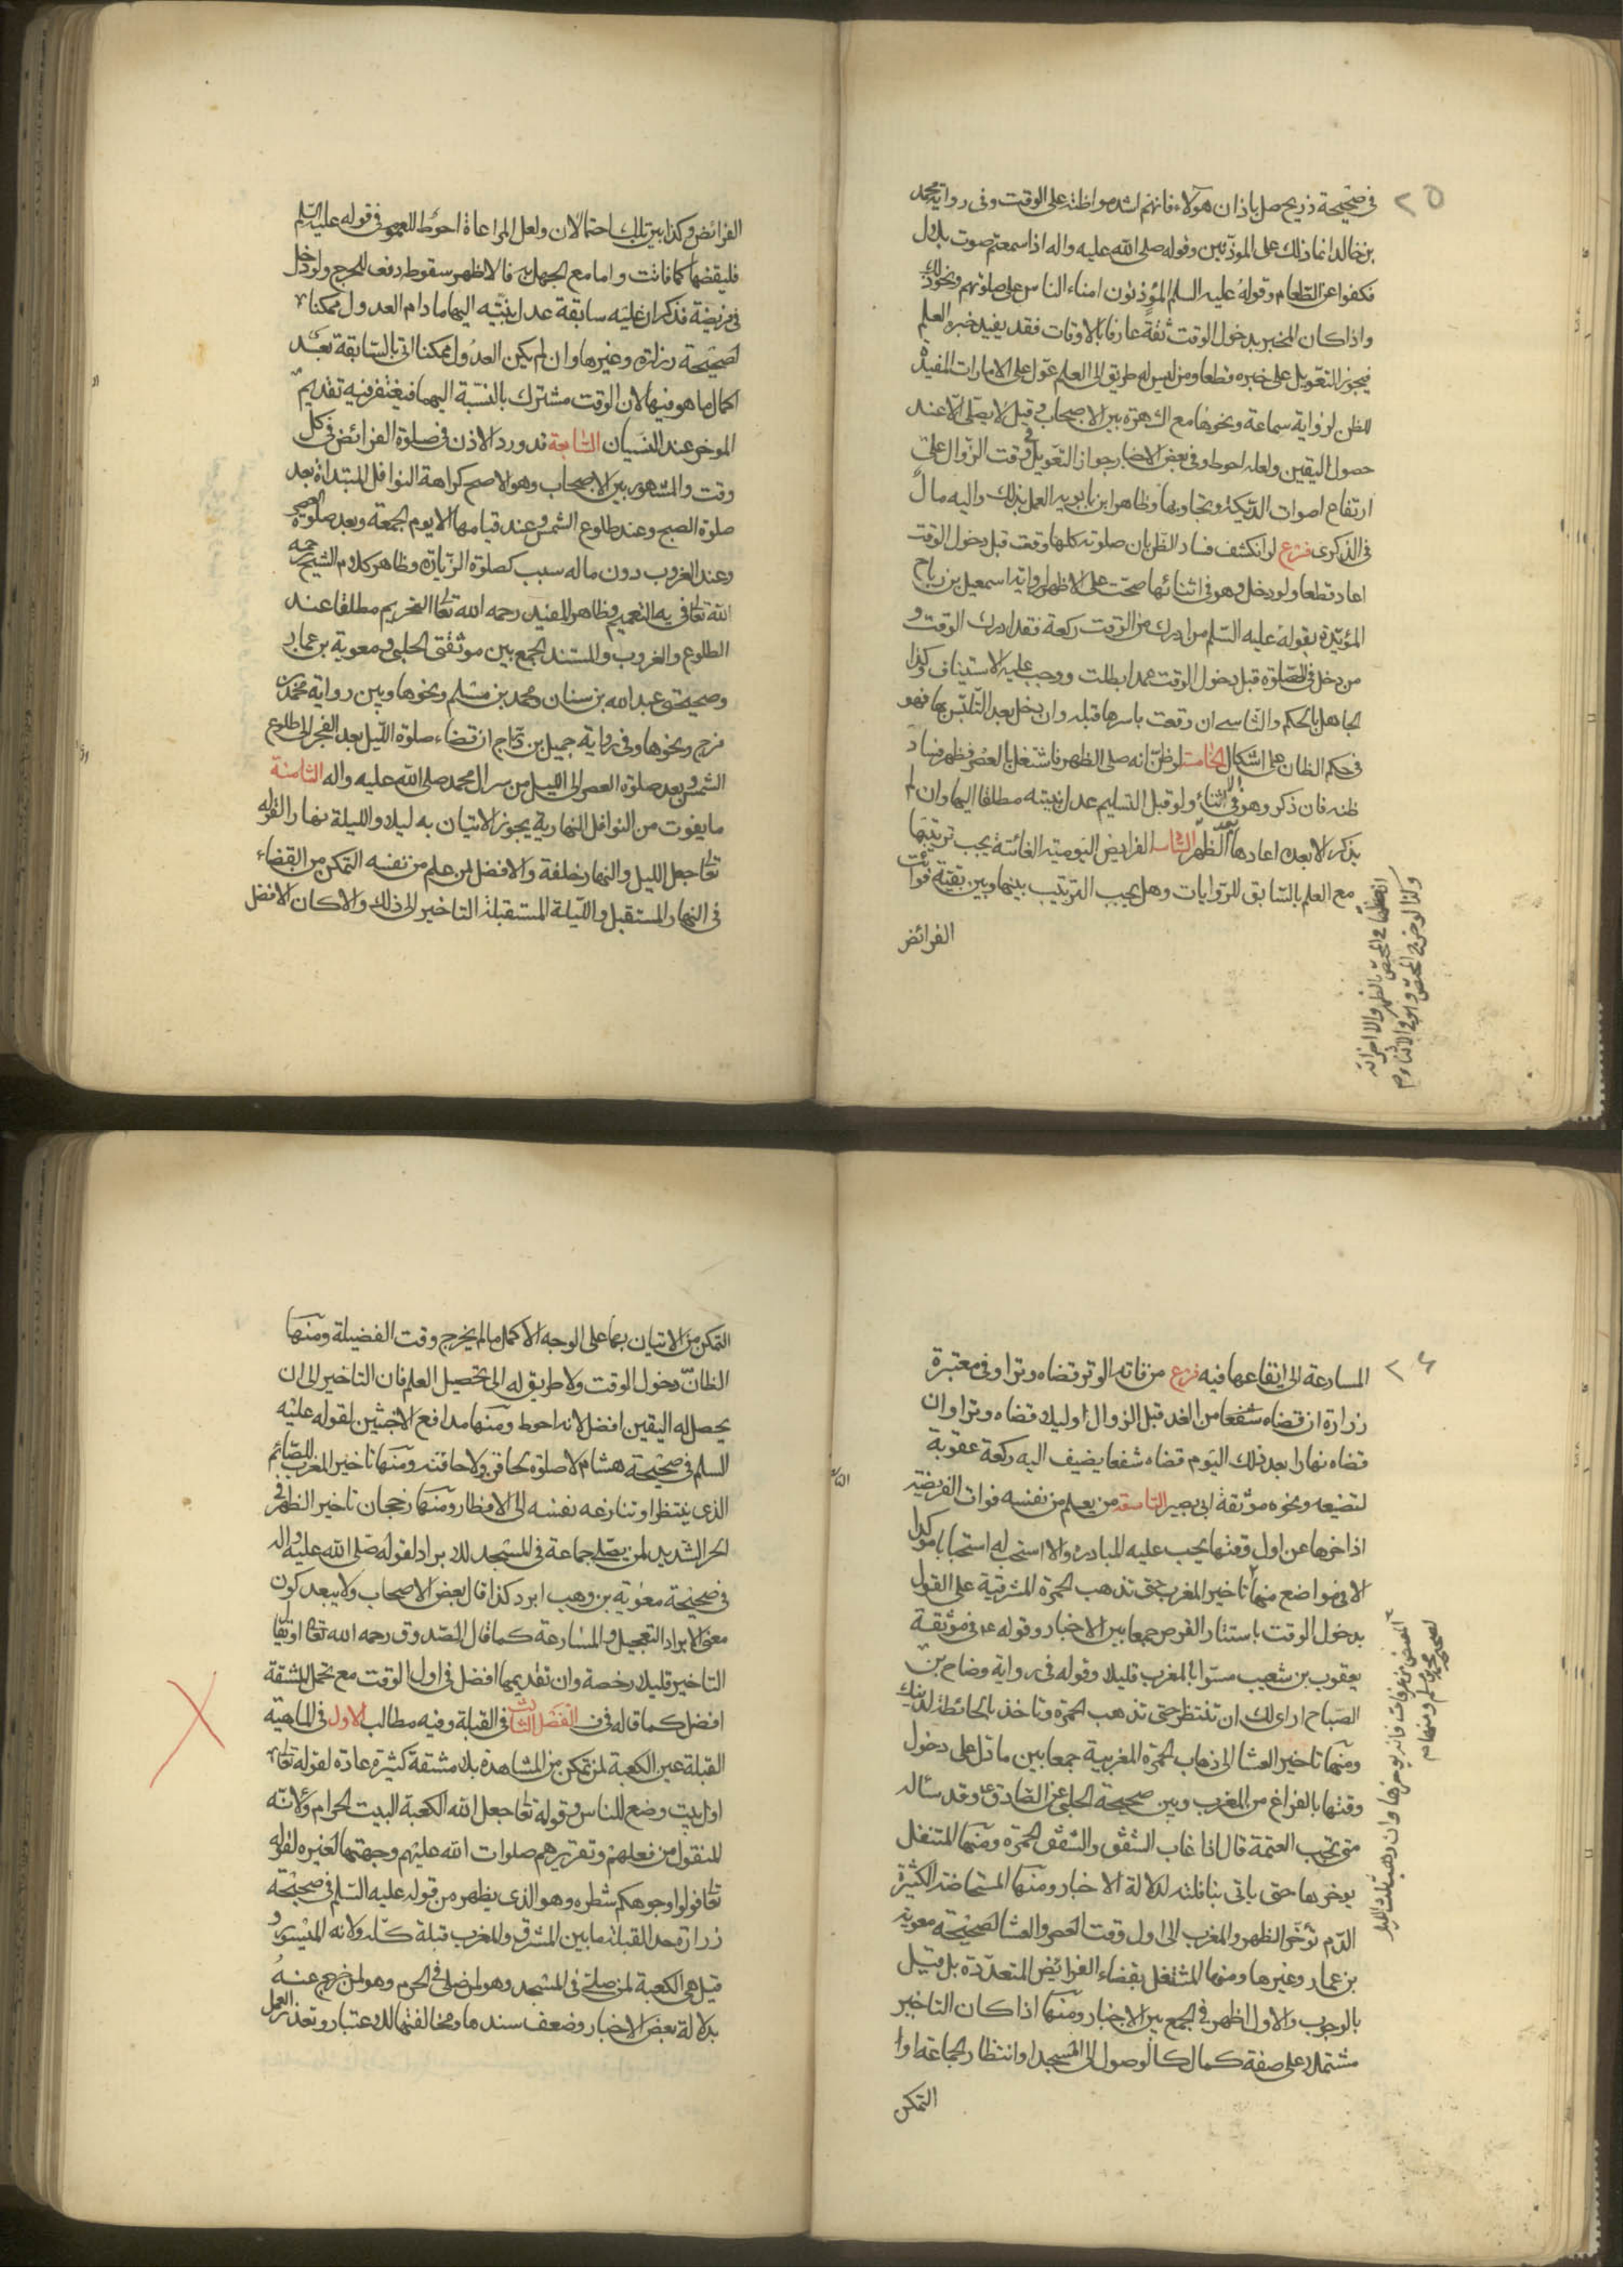 ٢٥
في صحيحة ذريح صل باذان هولاء فانهم اشد مواظبة على الوقت وفي رواية محمد
بن خالد انما ذلك على الموذنين وقوله صلى الله عليه واله اذا سمعتم صوت بلال
فكفوا عن الطعام وقوله عليه السلم الموذنون امناء الناس على صلوتهم ونحو ذلك
واذا كان المخبر بدخول الوقت ثقة عارفا بالاوقات فقد يفيد خبره العلم
فيجوز التعويل على خبره قطعا ومن ليس له طريق الى العلم عول على الامارات المفيدة
للظن لرواية سماعة ونحوها مع الشهرة بين الاصحاب وقيل لا يصلى الا عند
حصول اليقين ولعله احوط وفي بعض الاخبار جواز التعويل في وقت الزوال على
ارتفاع اصوات الديكة وتجاوبها وظاهر ابن بابويه العمل بذلك واليه مال
في الذكرى فرع لو انكشف فساد الظن بان صلوته كلها وقعت قبل دخول الوقت
اعاد قطعا ولو دخل وهو في اثنائها صحت على الاظهر لرواية اسمعيل بن رباح
المؤيدة بقوله عليه السلم من ادرك من الوقت ركعة فقد ادرك الوقت و
من دخل في الصلوة قبل دخول الوقت عمدا بطلت ووجب عليه الاستيناف وكذا
الجاهل بالحكم والناسي ان وقعت باسرها قبله وان دخل بعد التلبس بها فهو
في حكم الظان على اشكال الخامسة لو ظن انه صلى الظهر فاشتغل بالعصر فظهر فساد
ظنه فان ذكر وهو في الاثناء ولو قبل التسليم عدل بنيته مطلقا اليها وان لم
يذكر الا بعد اعادها بعد الظهر السادسة الفرايض اليومية الفائتة يجب ترتيبها
مع العلم بالسابق للروايات وهل يجب الترتيب بينها وبين بقية فوائت
الفرائض
وكذا لو ظن في المختص واتى في الاثناء م
في المختص بالظهر والا اجزاته
الفرائض وكذا بين تلك احتمالان ولعل المراعاة احوط للعموم في قوله عليه السلم
فليقضها كما فاتت واما مع الجهل به فالاظهر سقوطه دفعا للحرج ولو دخل
في فريضة فذكر ان عليه سابقة عدل بنيته اليها ما دام العدول ممكنا
لصحيحة زرارة وغيرها وان لم يكن العدول ممكنا اتى بالسابقة بعد
اكمال ما هو فيها لان الوقت مشترك بالنسبة اليهما فيغتفر فيه تقديم
الموخر عند النسيان السابعة قد ورد الاذن في صلوة الفرائض في كل
وقت والمشهور بين الاصحاب وهو الاصح كراهة النوافل المبتداة بعد
صلوة الصبح وعند طلوع الشمس وعند قيامها الا يوم الجمعة وبعد صلوة العصر
وعند الغروب دون ما له سبب كصلوة الزيارة وظاهر كلام الشيخ رحمه
الله تعالى في به التعميم وظاهر المفيد رحمه الله تعالى التحريم مطلقا عند
الطلوع والغروب والمستند الجمع بين موثقتي الحلبي ومعوية بن عمار
وصحيحتي عبد الله بن سنان ومحمد بن مسلم ونحوها وبين رواية محمد بن
فرج ونحوها وفي رواية جميل بن دراج ان قضاء صلوة الليل بعد الفجر الى طلوع
الشمس وبعد صلوة العصر الى الليل من سر ال محمد صلى الله عليه واله الثامنة
ما يفوت من النوافل النهارية يجوز الاتيان به ليلا والليلة نهارا لقوله
تعالى جعل الليل والنهار خلفة والافضل لمن علم من نفسه التمكن من القضاء
في النهار المستقبل والليلة المستقبلة التاخير الى ذلك والا كان الافضل
٢٦
المسارعة الى ايقاعها فيه فرع من فاته الوتر قضاه وترا وفي معتبرة
زرارة ان قضاه شفعا من الغد قبل الزوال او ليلا قضاه وترا وان
قضاه نهارا بعد ذلك اليوم قضاه شفعا يضيف اليه ركعة عقوبة
لتضيعه ونحوه موثقة ابي بصير التاسعة من يعلم من نفسه فوات الفريضة
اذا اخرها عن اول وقتها يجب عليه المبادرة والا استحب له استحبابا موكدا
الا في مواضع منها تاخير المغرب حتى تذهب الحمرة المشرقية على القول
بدخول الوقت باستتار القرص جمعا بين الاخبار وقوله ع في موثقة
يعقوب بن شعيب مسوا بالمغرب قليلا وقوله في رواية وضاح بن
الصباح ارى لك ان تنتظر حتى تذهب الحمرة وتاخذ بالحائطة لدينك
ومنها تاخير العشا الى ذهاب الحمرة المغربية جمعا بين ما دل على دخول
وقتها بالفراغ من المغرب وبين صحيحة الحلبي عن الصادق ع وقد سئله
متى تجب العتمة قال اذا غاب الشفق والشفق الحمرة ومنها المتنفل
يوخرها حتى ياتي بنافلته لدلالة الاخبار ومنها المستحاضة الكثيرة
الدم توخر الظهر والمغرب الى اول وقت العصر والعشا لصحيحة معوية
بن عمار وغيرها ومنها المشتغل بقضاء الفرائض المتعددة بل قيل
بالوجوب والاول اظهر في الجمع بين الاخبار ومنها اذا كان التاخير
مشتملا على صفة كمال كالوصول الى المسجد او انتظار الجماعة او
التمكن
المفيض من عرفات فانه يوخرها وان ذهب ثلث الليل
لصحيحة محمد بن مسلم ومنها م
التمكن من الاتيان بها على الوجه الاكمل ما لم يخرج وقت الفضيلة ومنها
الظان دخول الوقت ولا طريق له الى تحصيل العلم فان التاخير الى ان
يحصل له اليقين افضل لانه احوط ومنها مدافع الاخبثين لقوله عليه
السلم في صحيحة هشام لا صلوة لحاقن ولا حاقنة ومنها تاخير المغرب للصائم
الذي ينتظر او تنازعه نفسه الى الافطار ومنها رجحان تاخير الظهر في
الحر الشديد لمن يصلي جماعة في المسجد للابراد لقوله صلى الله عليه واله
في صحيحة معوية بن وهب ابرد كذا قال بعض الاصحاب ولا يبعد كون
معنى الابراد التعجيل والمسارعة كما قال الصدوق رحمه الله تعالى او
التاخير قليلا رخصة وان تقديمها افضل في اول الوقت مع تحمل المشقة
افضل كما قاله في ف الفصل الثالث في القبلة وفيه مطالب الاول في الماهية
القبلة عين الكعبة لمن تمكن من المشاهدة بلا مشقة كثيرة عادة لقوله تعالى
اول بيت وضع للناس وقوله تعالى جعل الله الكعبة البيت الحرام ولانه
المنقول من فعلهم وتقريرهم صلوات الله عليهم وجهتها لغيره لقوله
تعالى فولوا وجوهكم شطره وهو الذي يظهر من قوله عليه السلم في صحيحة
زرارة حد القبلة ما بين المشرق والمغرب قبلة كله ولانه الميسور و
قيل هي الكعبة لمن صلى في المسجد وهو لمن صلى في الحرم وهو لمن خرج عنه
بدلالة بعض الاخبار وضعف سندها ومخالفتها للاعتبار وتعذر العمل